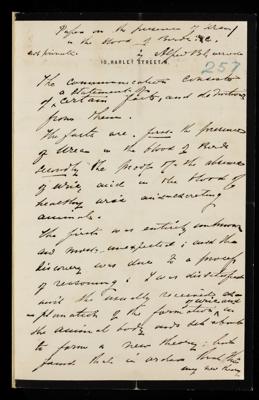 Paper on the presence of Urea
in the blood of Birds &c.
not printed by Alfred B. Garrod
10, HARLEY STREET, W.
257
The communication consists
of a statement of certain facts, and deductions
from them.
The facts are. first the presence
of Urea in the blood of Birds
secondly the proof of the absence
of uric acid in the blood of
healthy uric acid excreting
animals.
The first was entirely unknown
and most unexpected; and the
discovery was due to a process
of reasoning; I was dissatisfied
with the usually received ex
planation of the formation of uric acid in
the animal body and set about
to form a new theory; but
found that in order that this
any new theory